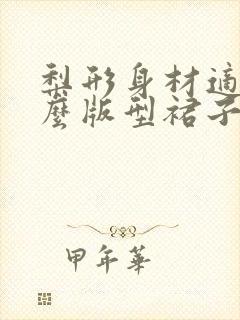 梨形身材適
麼版型裙子
甲年華